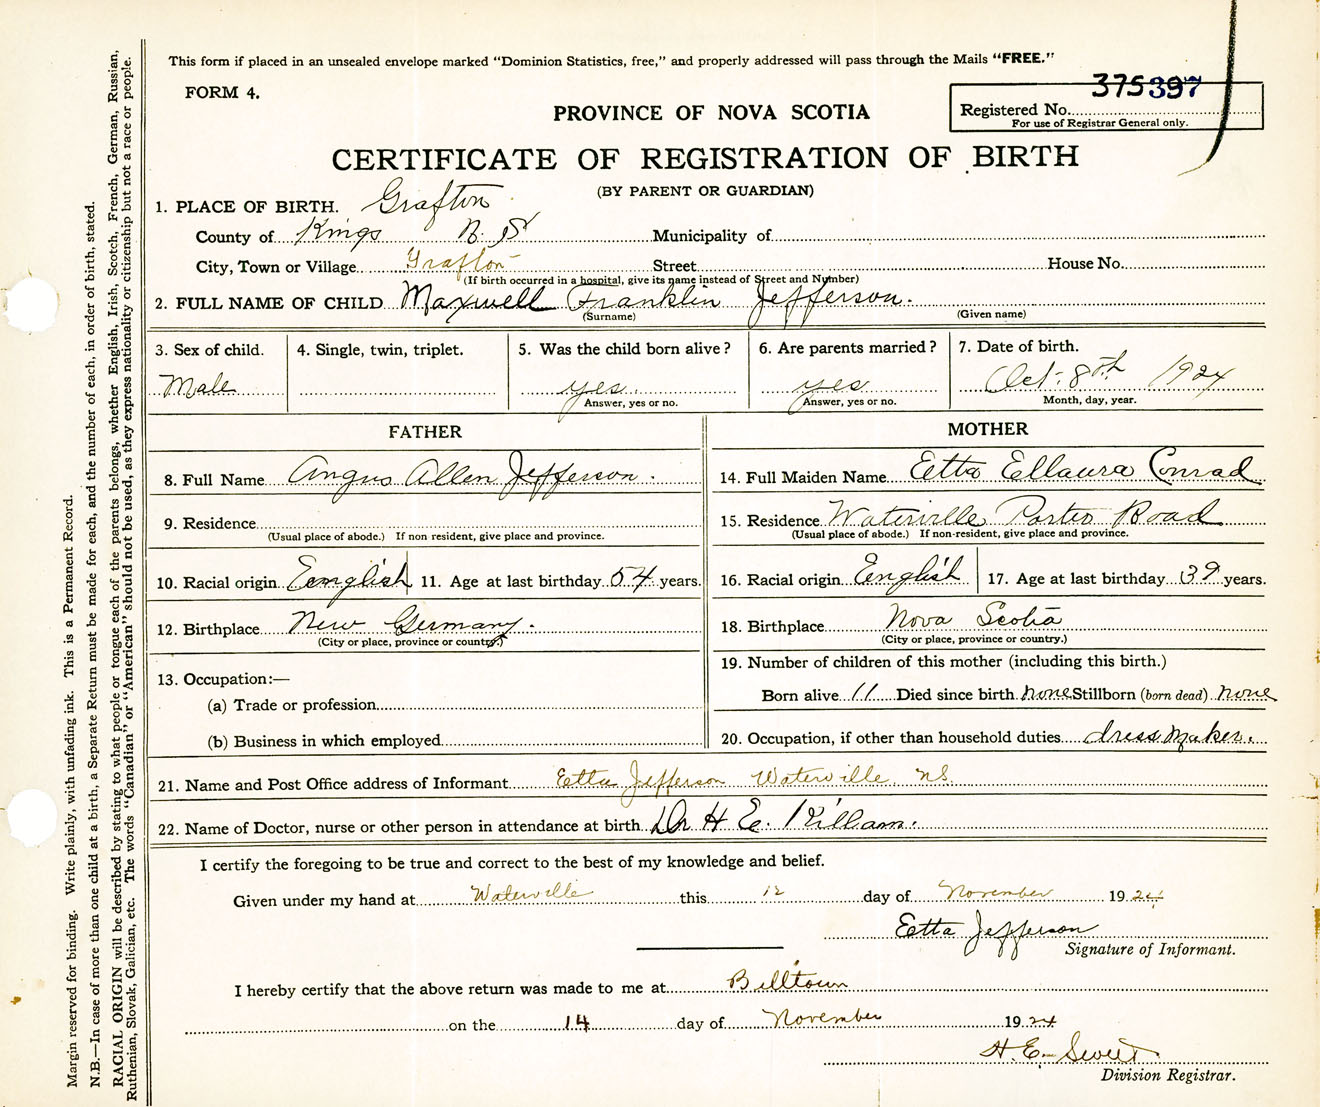 This form if placed in an unsealed envelope marked "Dominion Statistics, free," and properly addressed will pass through the Mails "FREE."
FORM 4.
375397
PROVINCE OF NOVA SCOTIA
Registered No.
For use of Registrar General only.
CERTIFICATE OF REGISTRATION OF BIRTH
(BY PARENT OR GUARDIAN)
1. PLACE OF BIRTH. Grafton
County of Kings N. S Municipality of
City, Town or Village Grafton Street House No.
(If birth occurred in a hospital, give its name instead of Street and Number)
2. FULL NAME OF CHILD Maxwell Franklin Jefferson.
(Surname) (Given name)
3. Sex of child. 4. Single, twin, triplet. 5. Was the child born alive? 6. Are parents married? 7. Date of birth.
Male yes. yes Oct. 8th 1924
Answer, yes or no. Answer, yes or no. Month, day, year.
FATHER MOTHER
8. Full Name Angus Allen Jefferson. 14. Full Maiden Name Etta Ellaura Conrad
9. Residence 15. Residence Waterville Porter Road
(Usual place of abode.) If non resident, give place and province. (Usual place of abode.) If non-resident, give place and province.
10. Racial origin Eenglish 11. Age at last birthday 54 years. 16. Racial origin English 17. Age at last birthday 39 years.
12. Birthplace New Germany. 18. Birthplace Nova Scotia
(City or place, province or country.) (City or place, province or country.)
13. Occupation:— 19. Number of children of this mother (including this birth.)
(a) Trade or profession Born alive 11 Died since birth none Stillborn (born dead) none
(b) Business in which employed 20. Occupation, if other than household duties dress maker.
21. Name and Post Office address of Informant Etta Jefferson Waterville, N.S.
22. Name of Doctor, nurse or other person in attendance at birth Dr H E. Killam.
I certify the foregoing to be true and correct to the best of my knowledge and belief.
Given under my hand at Waterville this 12 day of November 1924
Etta Jefferson
Signature of Informant.
I hereby certify that the above return was made to me at Billtown
on the 14 day of November 1924
H. E. Sweet
Division Registrar.
Margin reserved for binding. Write plainly, with unfading ink. This is a Permanent Record.
N.B.—In case of more than one child at a birth, a Separate Return must be made for each, and the number of each, in order of birth, stated.
RACIAL ORIGIN will be described by stating to what people or tongue each of the parents belongs, whether English, Irish, Scotch, French, German, Russian,
Ruthenian, Slovak, Galician, etc. The words "Canadian" or "American" should not be used, as they express nationality or citizenship but not a race or people.